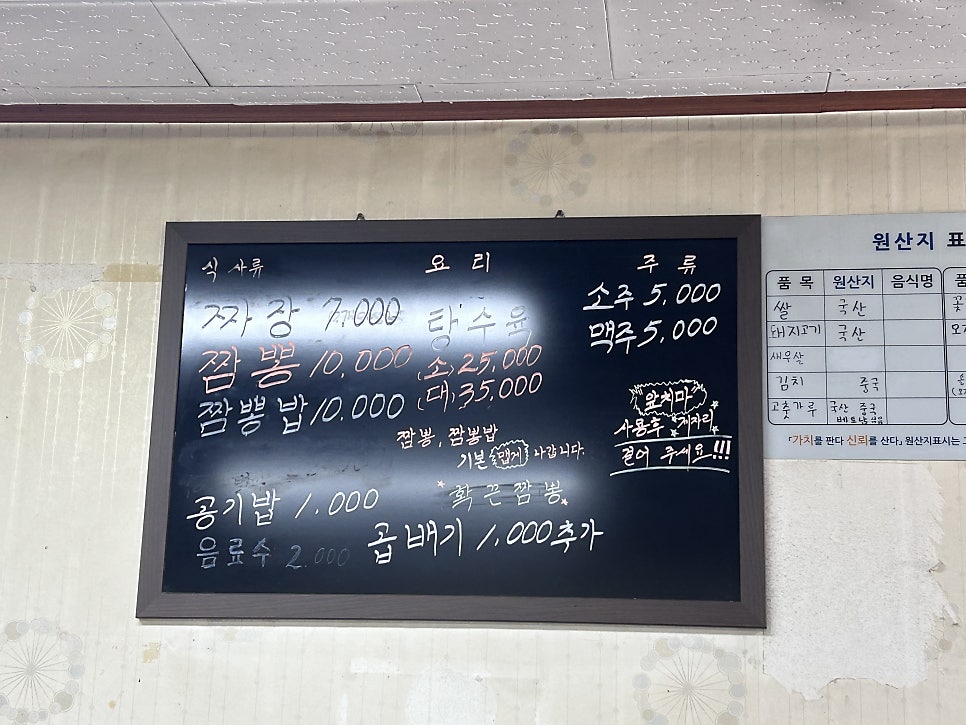 식사류
짜장 7,000
짬뽕 10,000
짬뽕밥 10,000
공기밥 1,000
음료수 2,000
요리
탕수육
(소) 25,000
(대) 35,000
짬뽕, 짬뽕밥
기본 맵게 나갑니다.
*화끈짬뽕*
곱배기 1,000 추가
주류
소주 5,000
맥주 5,000
앞치마
사용후 *제자리*
걸어 주세요!!!
원산지 표
품 목 원산지 음식명 품
쌀 국산
돼지고기 국산
새우살
김치 중국
고춧가루 국산 중국
「가치를 판다 신뢰를 산다」 원산지표시는